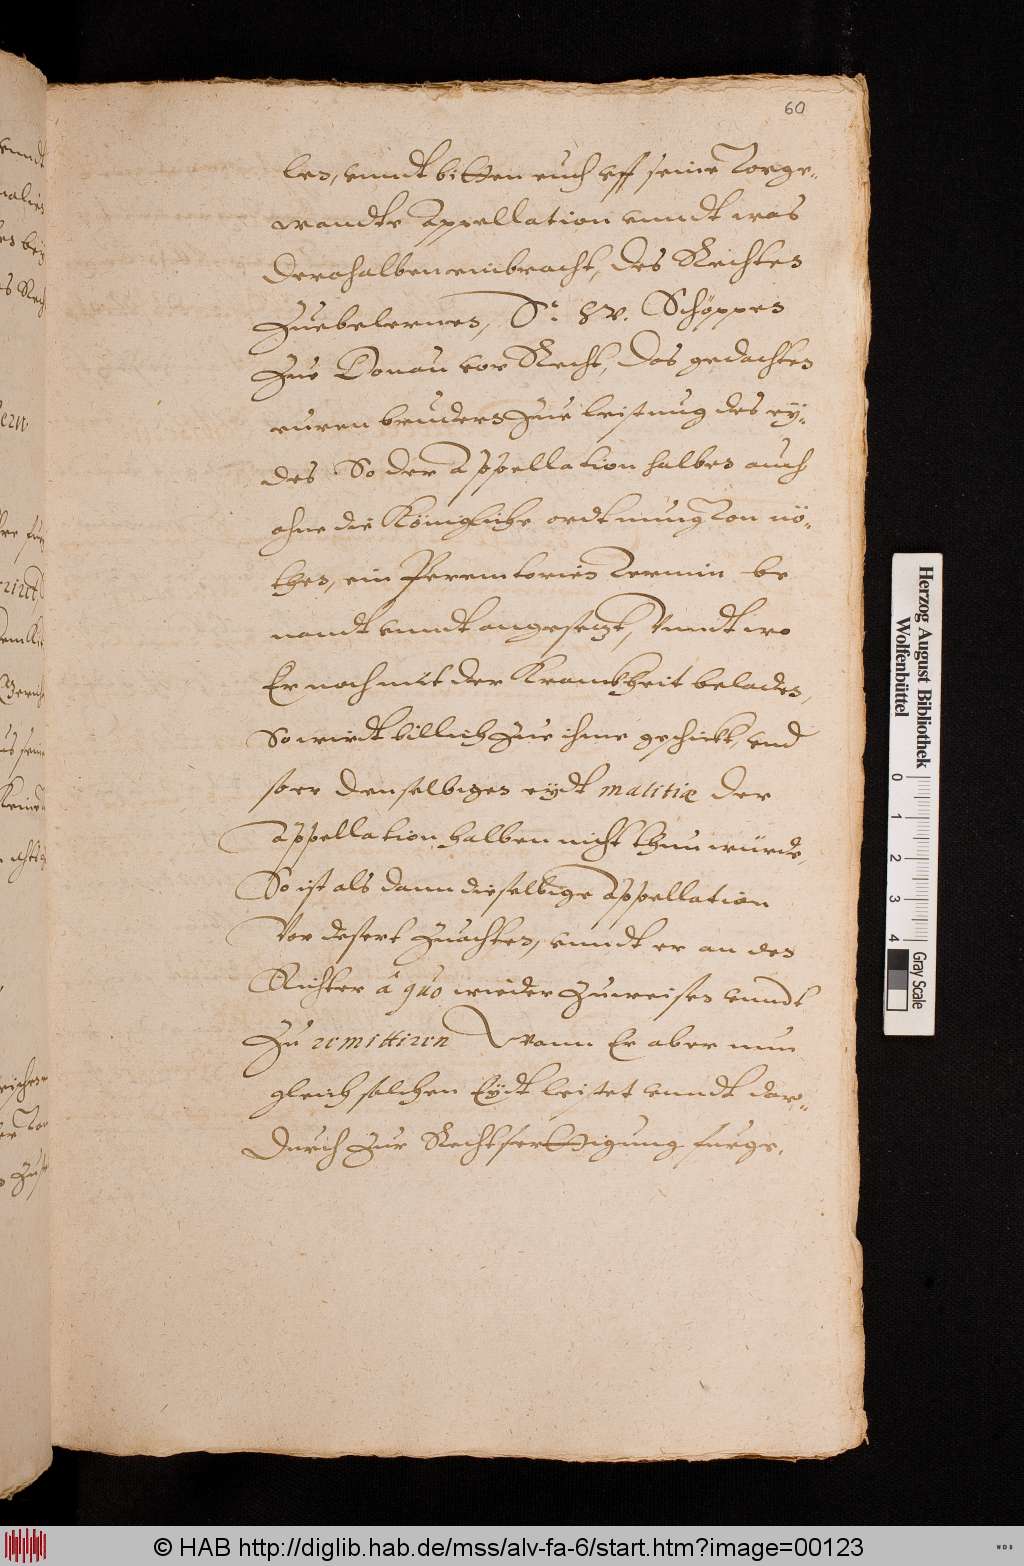 60
len, vnndt bitten euch vff seine vorge-
wandte Appellation vnndt was
derohalben einbracht, des Rechten
Zuebelernen, Schöppen
zue Donau vor Recht, das gedachten
euren brudern zue leistung des ey-
des So der appellation halben auch
ohne die Königliche ordtnung von nö-
then, ein Peremtorien Termin be
nandt vnndt angesetzt, Vnndt wo
Er noch mit der Kranckheit beladen,
So wirdt billich zue ihme geschickt, vnd
so er denselbigen eydt malitiæ der
appellation halben nicht thun würde,
So ist als dann dieselbige appellation
Vor desert zuachten, vnndt er an den
Richter â quo wieder zuweisen vnndt
Zu remittiren Wann Er aber nun
gleich solchen Eydt leistet vnndt dar-
durch zur Rechtfertigung furge-
Herzog August Bibliothek
Wolfenbüttel
0 1 2 3 4
Gray Scale
© HAB http://diglib.hab.de/mss/alv-fa-6/start.htm?image=00123